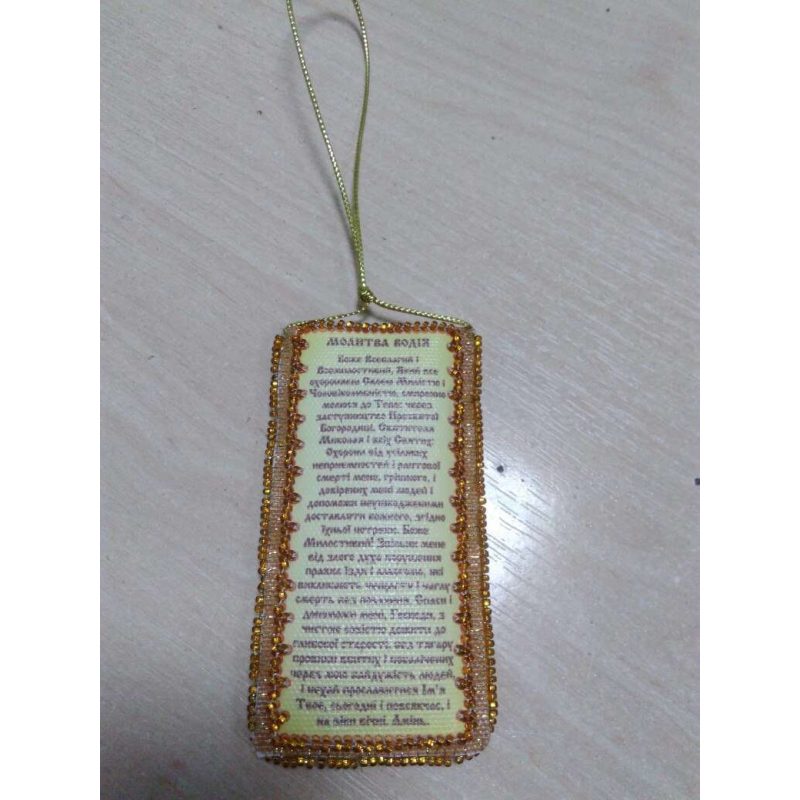 МОЛИТВА ВОДІЯ
Боже Всеблагий і
Всемилостивий, Який все
охороняєш Своєю Милістю і
Чоловіколюбністю, смиренно
молюся до Тебе: через
заступництво Пресвятої
Богородиці, Святителя
Миколая і всіх Святих:
Охорони від усіляких
неприємностей і раптової
смерті мене, грішного, і
довірених мені людей і
допоможи неушкодженими
доставляти кожного, згідно
їхньої потреби. Боже
Милостивий! Звільни мене
від злого духа порушення
правил їзди і алкоголю, які
викликають нещастя і наглу
смерть без покаяння. Спаси і
допоможи мені, Господи, з
чистою совістю дожити до
глибокої старості, без тягару
провини вбитих і покалічених
через мою байдужість людей,
і нехай прославиться Ім'я
Твоє, сьогодні і повсякчас, і
на віки вічні. Амінь.